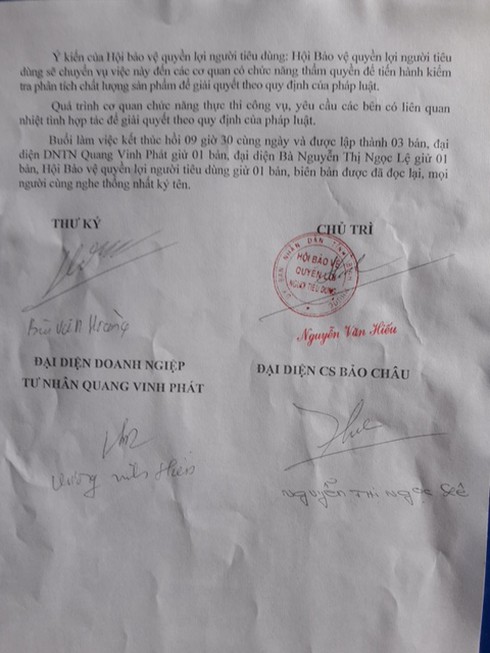 Ý kiến của Hội bảo vệ quyền lợi người tiêu dùng: Hội Bảo vệ quyền lợi người tiêu
dùng sẽ chuyển vụ việc này đến các cơ quan có chức năng thẩm quyền để tiến hành kiểm
tra phân tích chất lượng sản phẩm để giải quyết theo quy định của pháp luật.
Quá trình cơ quan chức năng thực thi công vụ, yêu cầu các bên có liên quan
nhiệt tình hợp tác để giải quyết theo quy định của pháp luật.
Buổi làm việc kết thúc hồi 09 giờ 30 cùng ngày và được lập thành 03 bản, đại
diện DNTN Quang Vinh Phát giữ 01 bản, đại diện Bà Nguyễn Thị Ngọc Lệ giữ 01
bản, Hội Bảo vệ quyền lợi người tiêu dùng giữ 01 bản, biên bản được đã đọc lại, mọi
người cùng nghe thống nhất ký tên.
THƯ KÝ
CHỦ TRÌ
ỦY BAN NHÂN DÂN
HỘI BẢO VỆ
QUYỀN LỢI
NGƯỜI TIÊU DÙNG
Bùi Văn
Nguyễn Văn Hiếu
ĐẠI DIỆN DOANH NGIỆP
TƯ NHÂN QUANG VINH PHÁT
ĐẠI DIỆN CS BẢO CHÂU
Nguyễn Thị Ngọc